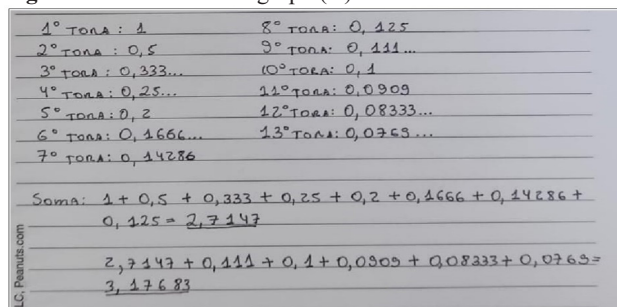 1º TORA: 1
2º TORA: 0,5
3º TORA: 0,333...
4º TORA: 0,25...
5º TORA: 0,2
6º TORA: 0,1666...
7º TORA: 0,14286
8º TORA: 0,125
9º TORA: 0,111...
10º TORA: 0,1
11º TORA: 0,0909
12º TORA: 0,08333...
13º TORA: 0,0769...
Soma: 1 + 0,5 + 0,333 + 0,25 + 0,2 + 0,1666 + 0,14286 +
0,125 = 2,7147
2,7147 + 0,111 + 0,1 + 0,0909 + 0,08333 + 0,0769 =
3,17683
LC, Peanuts.com